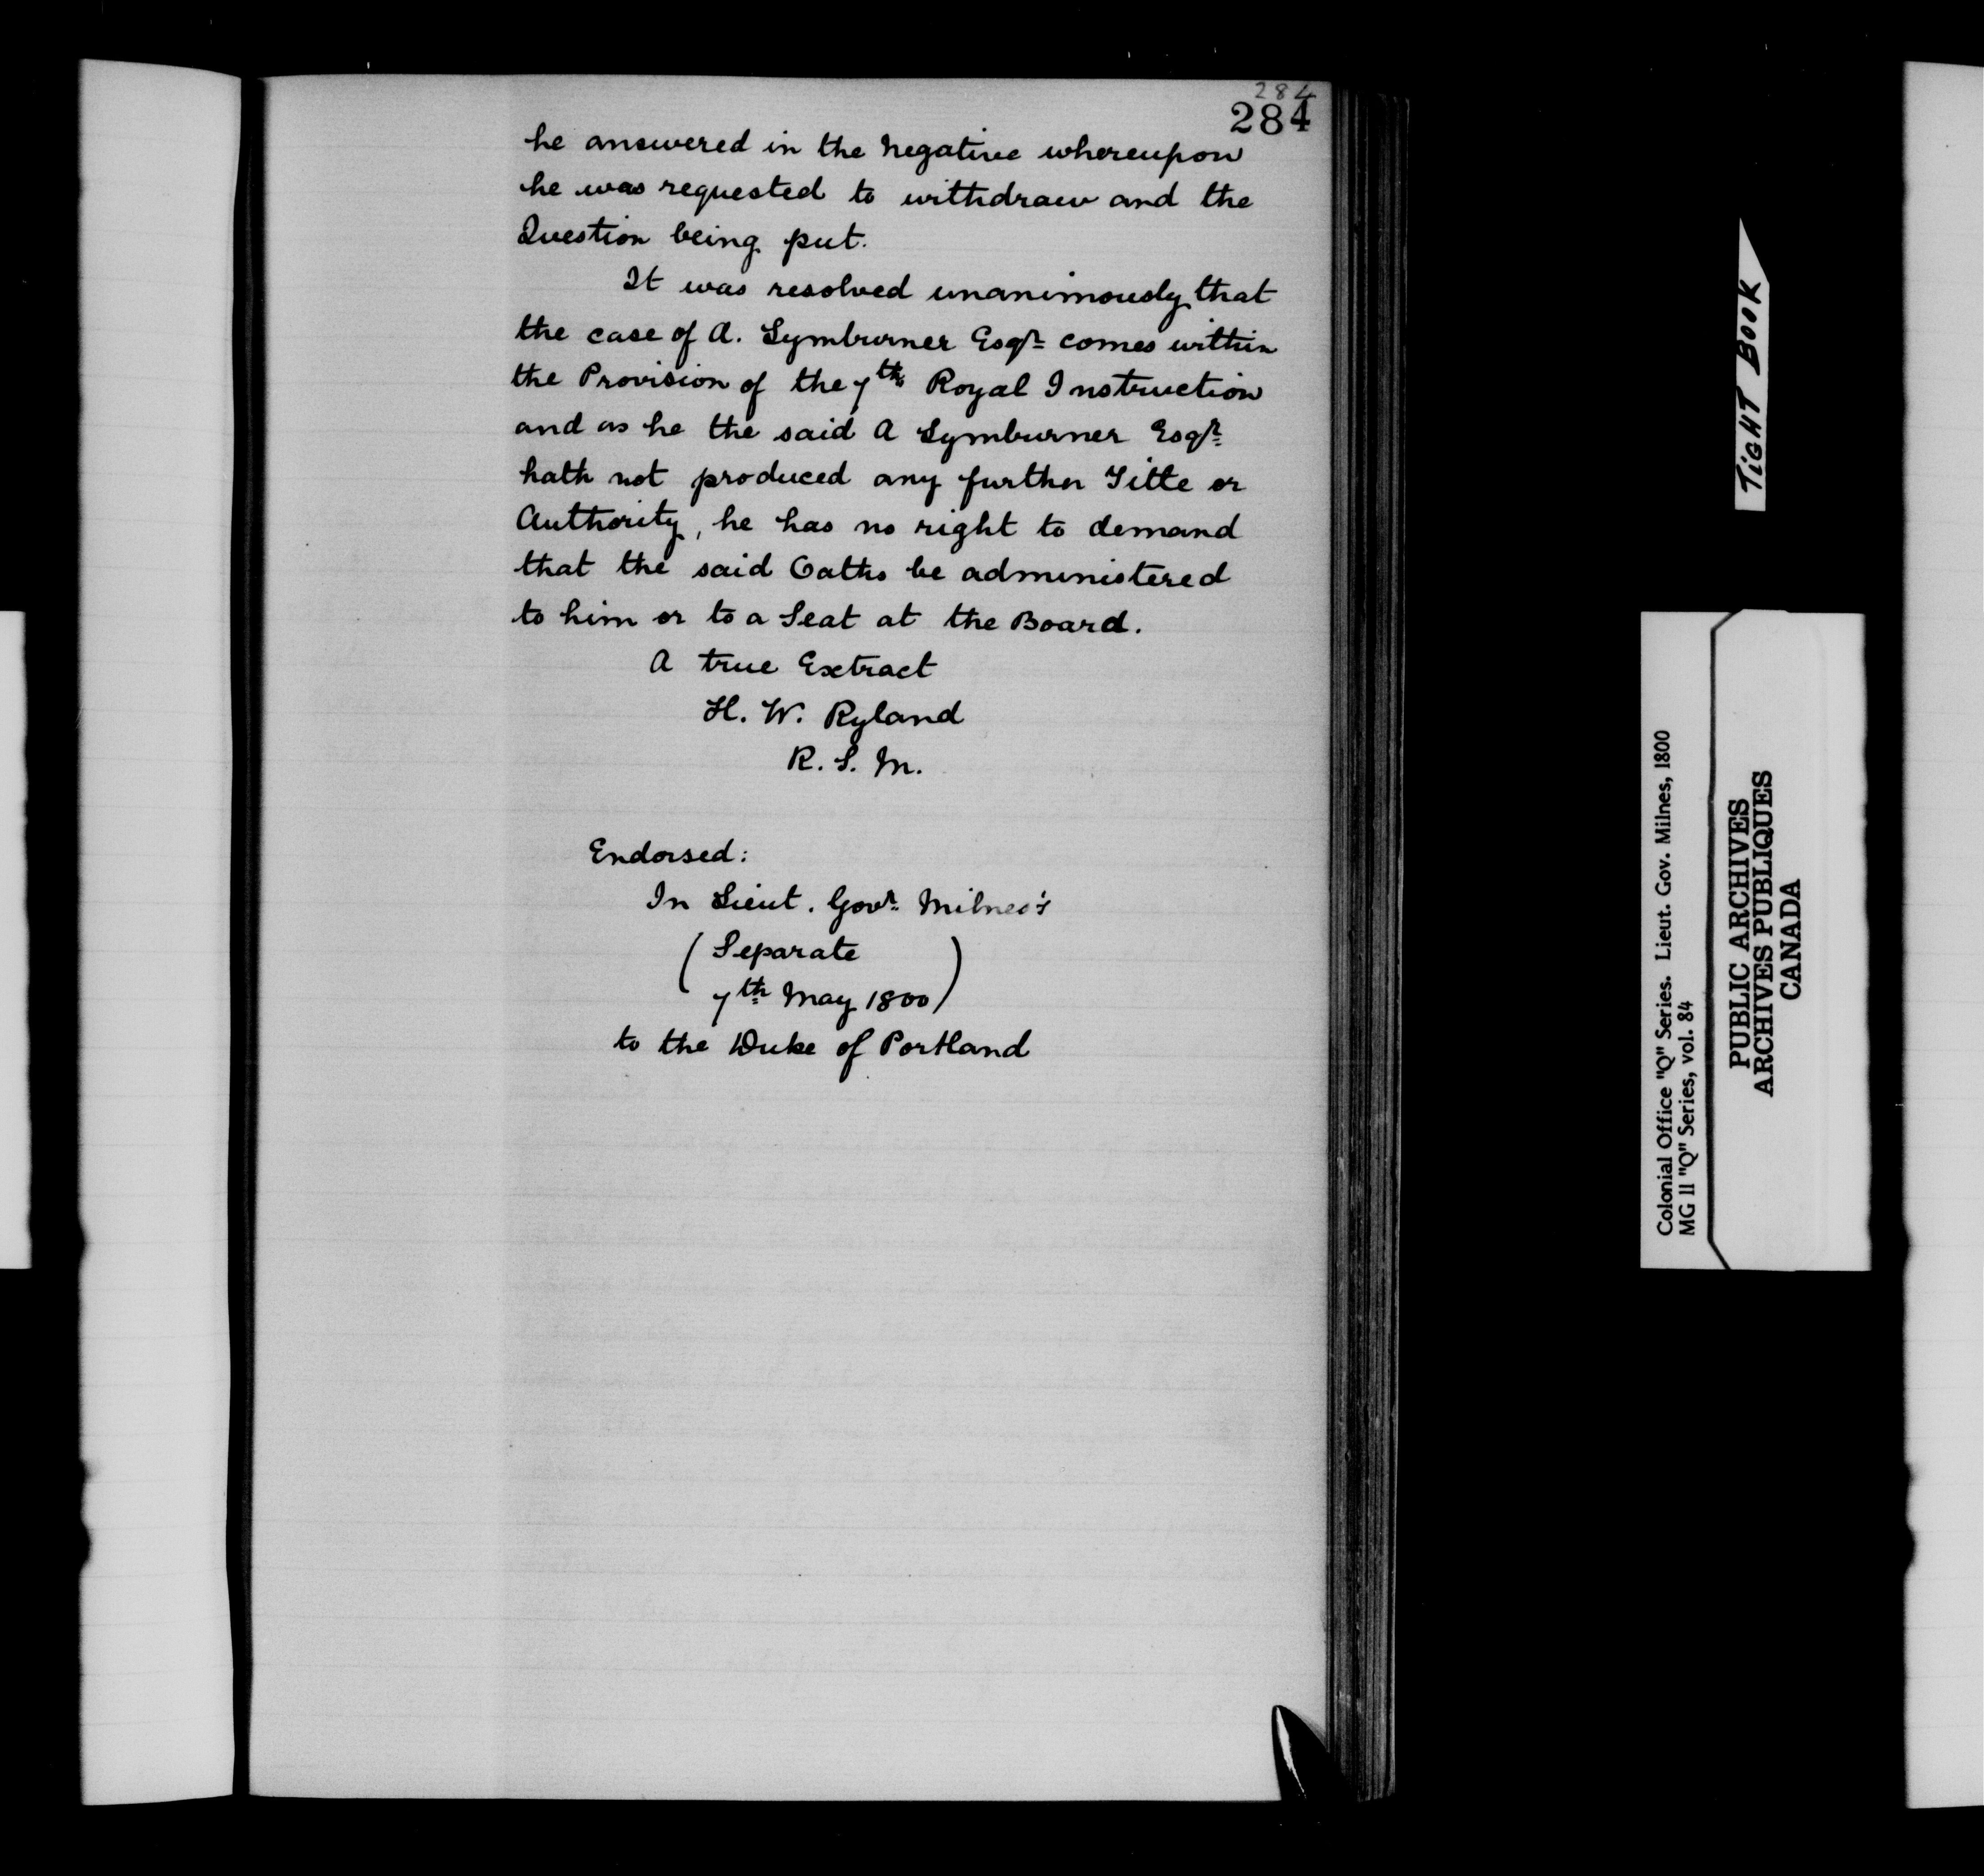 284
284
he answered in the Negative whereupon
he was requested to withdraw and the
Question being put.
It was resolved unanimously that
the case of A. Lymburner Esqr. comes within
the Provision of the 7th Royal Instruction
and as he the said A Lymburner Esqr.
hath not produced any further Title or
Authority, he has no right to demand
that the said Oaths be administered
to him or to a Seat at the Board.
A true Extract
H. W. Ryland
R. S. M.
Endorsed:
In Lieut. Govr. Milnes's
(Separate
7th May 1800)
to the Duke of Portland
TIGHT BOOK
Colonial Office "Q" Series. Lieut. Gov. Milnes, 1800
MG 11 "Q" Series, vol. 84
PUBLIC ARCHIVES
ARCHIVES PUBLIQUES
CANADA